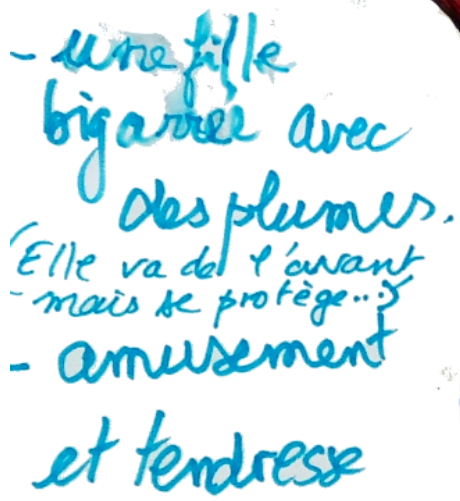 - une fille
bigarrée avec
des plumes.
(Elle va de l'avant
- mais se protège...)
- amusement
et tendresse